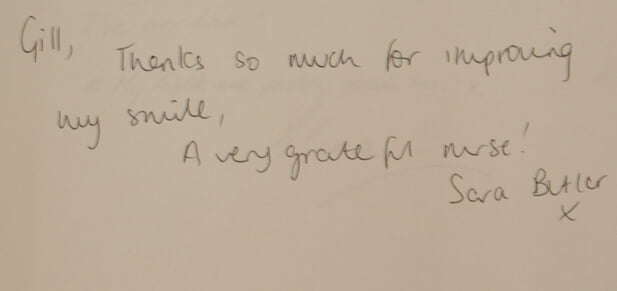 Gill, Thanks so much for improving
my smile,
A very grateful nurse!
Sara Butler
x